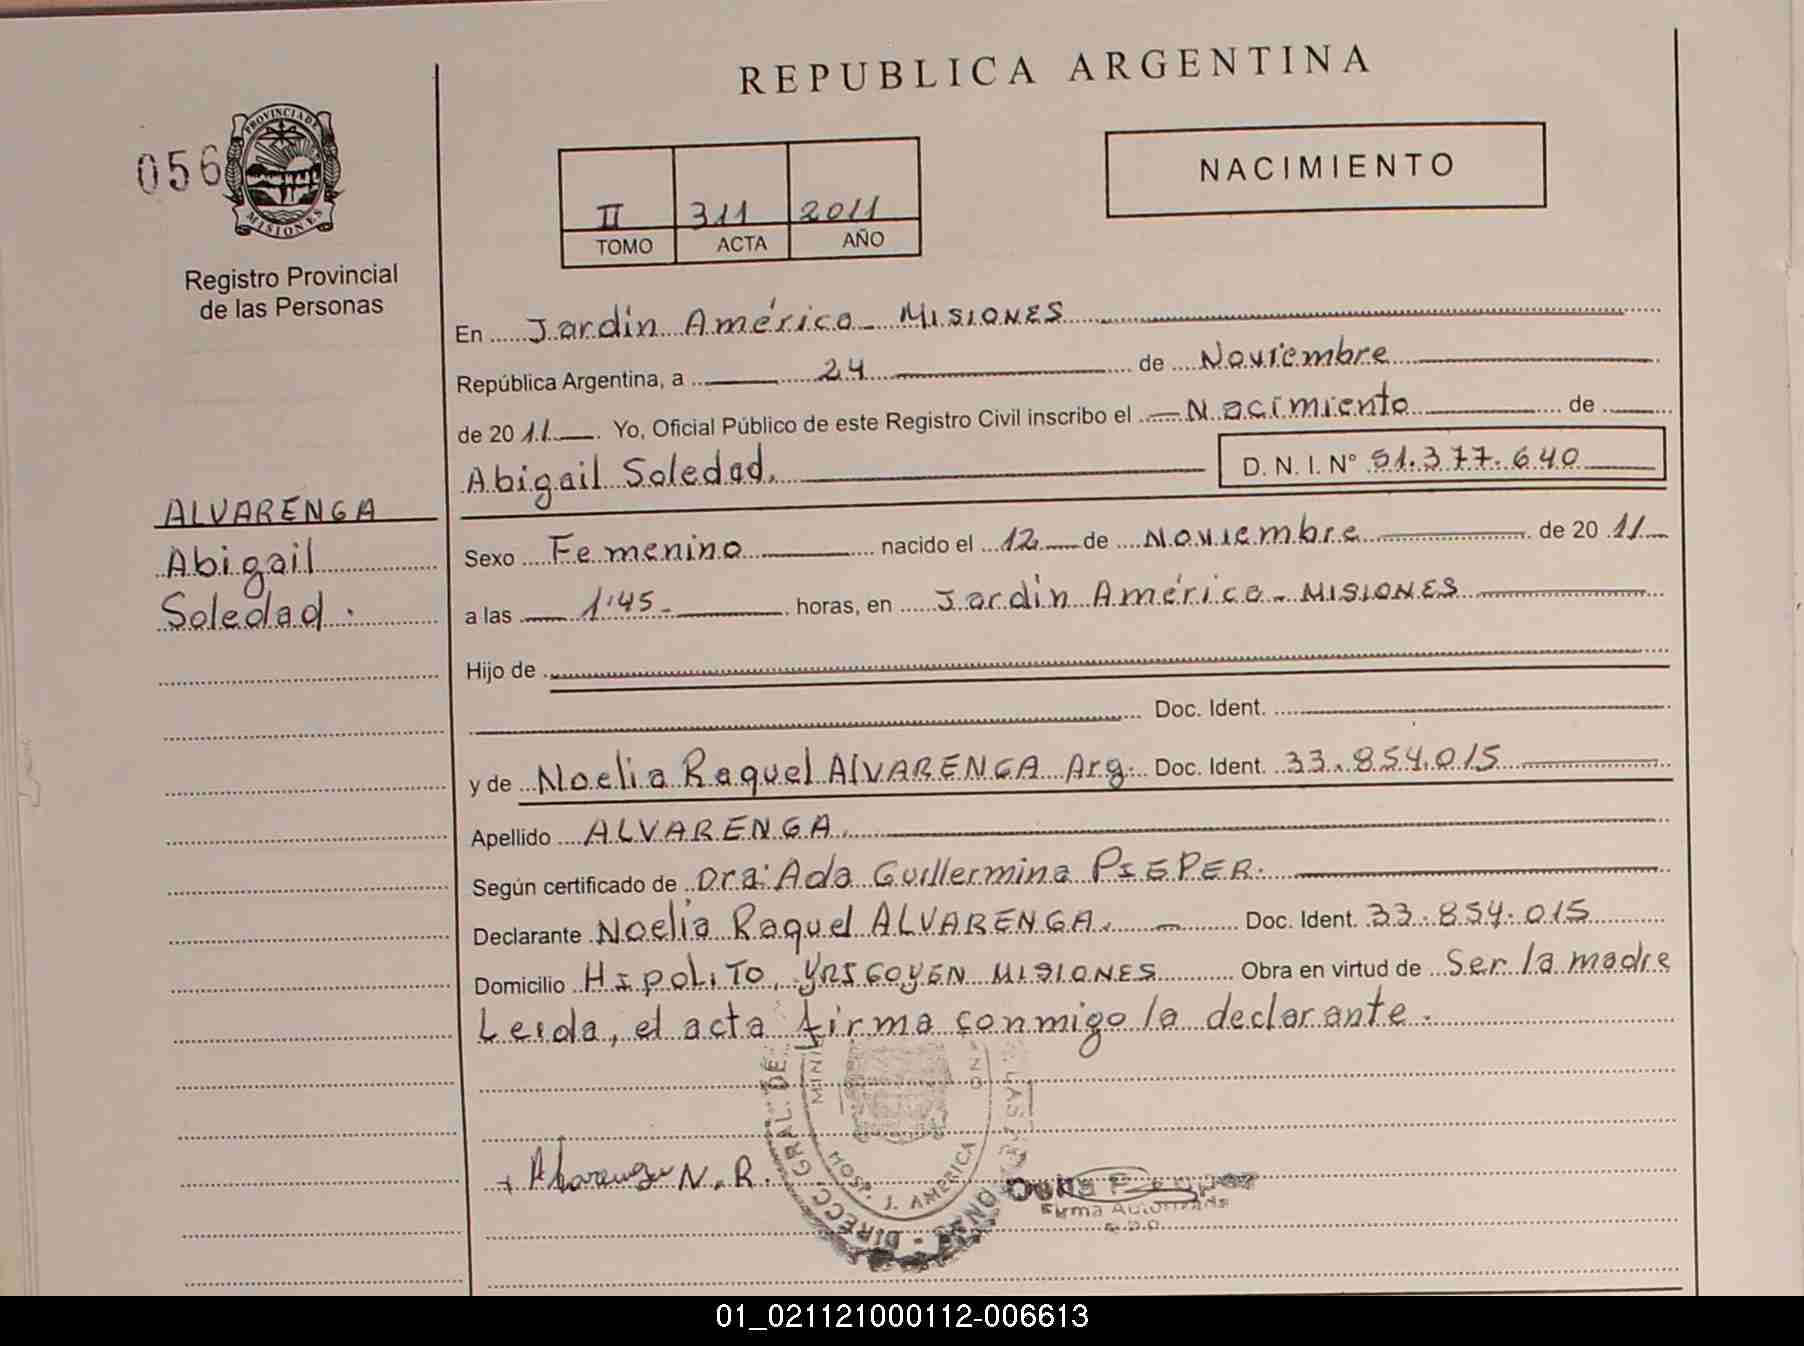 REPUBLICA ARGENTINA
056
PROVINCIA DE
MISIONES
Registro Provincial
de las Personas
II 311 2011
TOMO ACTA AÑO
NACIMIENTO
En Jardín América - MISIONES
República Argentina, a 24 de Noviembre
de 20 11. Yo, Oficial Público de este Registro Civil inscribo el Nacimiento de
Abigail Soledad. D. N. I. N° 51.377.640
ALVARENGA
Abigail
Soledad.
Sexo Femenino nacido el 12 de Noviembre de 20 11
a las 1:45 - horas, en Jardín América - MISIONES
Hijo de
Doc. Ident.
y de Noelia Raquel AlVARENGA Arg. Doc. Ident. 33.854.015
Apellido ALVARENGA.
Según certificado de Dra. Ada Guillermina PIEPER.
Declarante Noelia Raquel ALVARENGA. Doc. Ident. 33.854.015
Domicilio HIpoLiTo, YRIGOYEN MISIONES Obra en virtud de Ser la madre
Leida, el acta firma conmigo la declarante.
DIRECC. GRAL. DE
HOSP. J. AMERICA
LAS
+ Alvarenga N. R.
Firma Autorizada
01_021121000112-006613